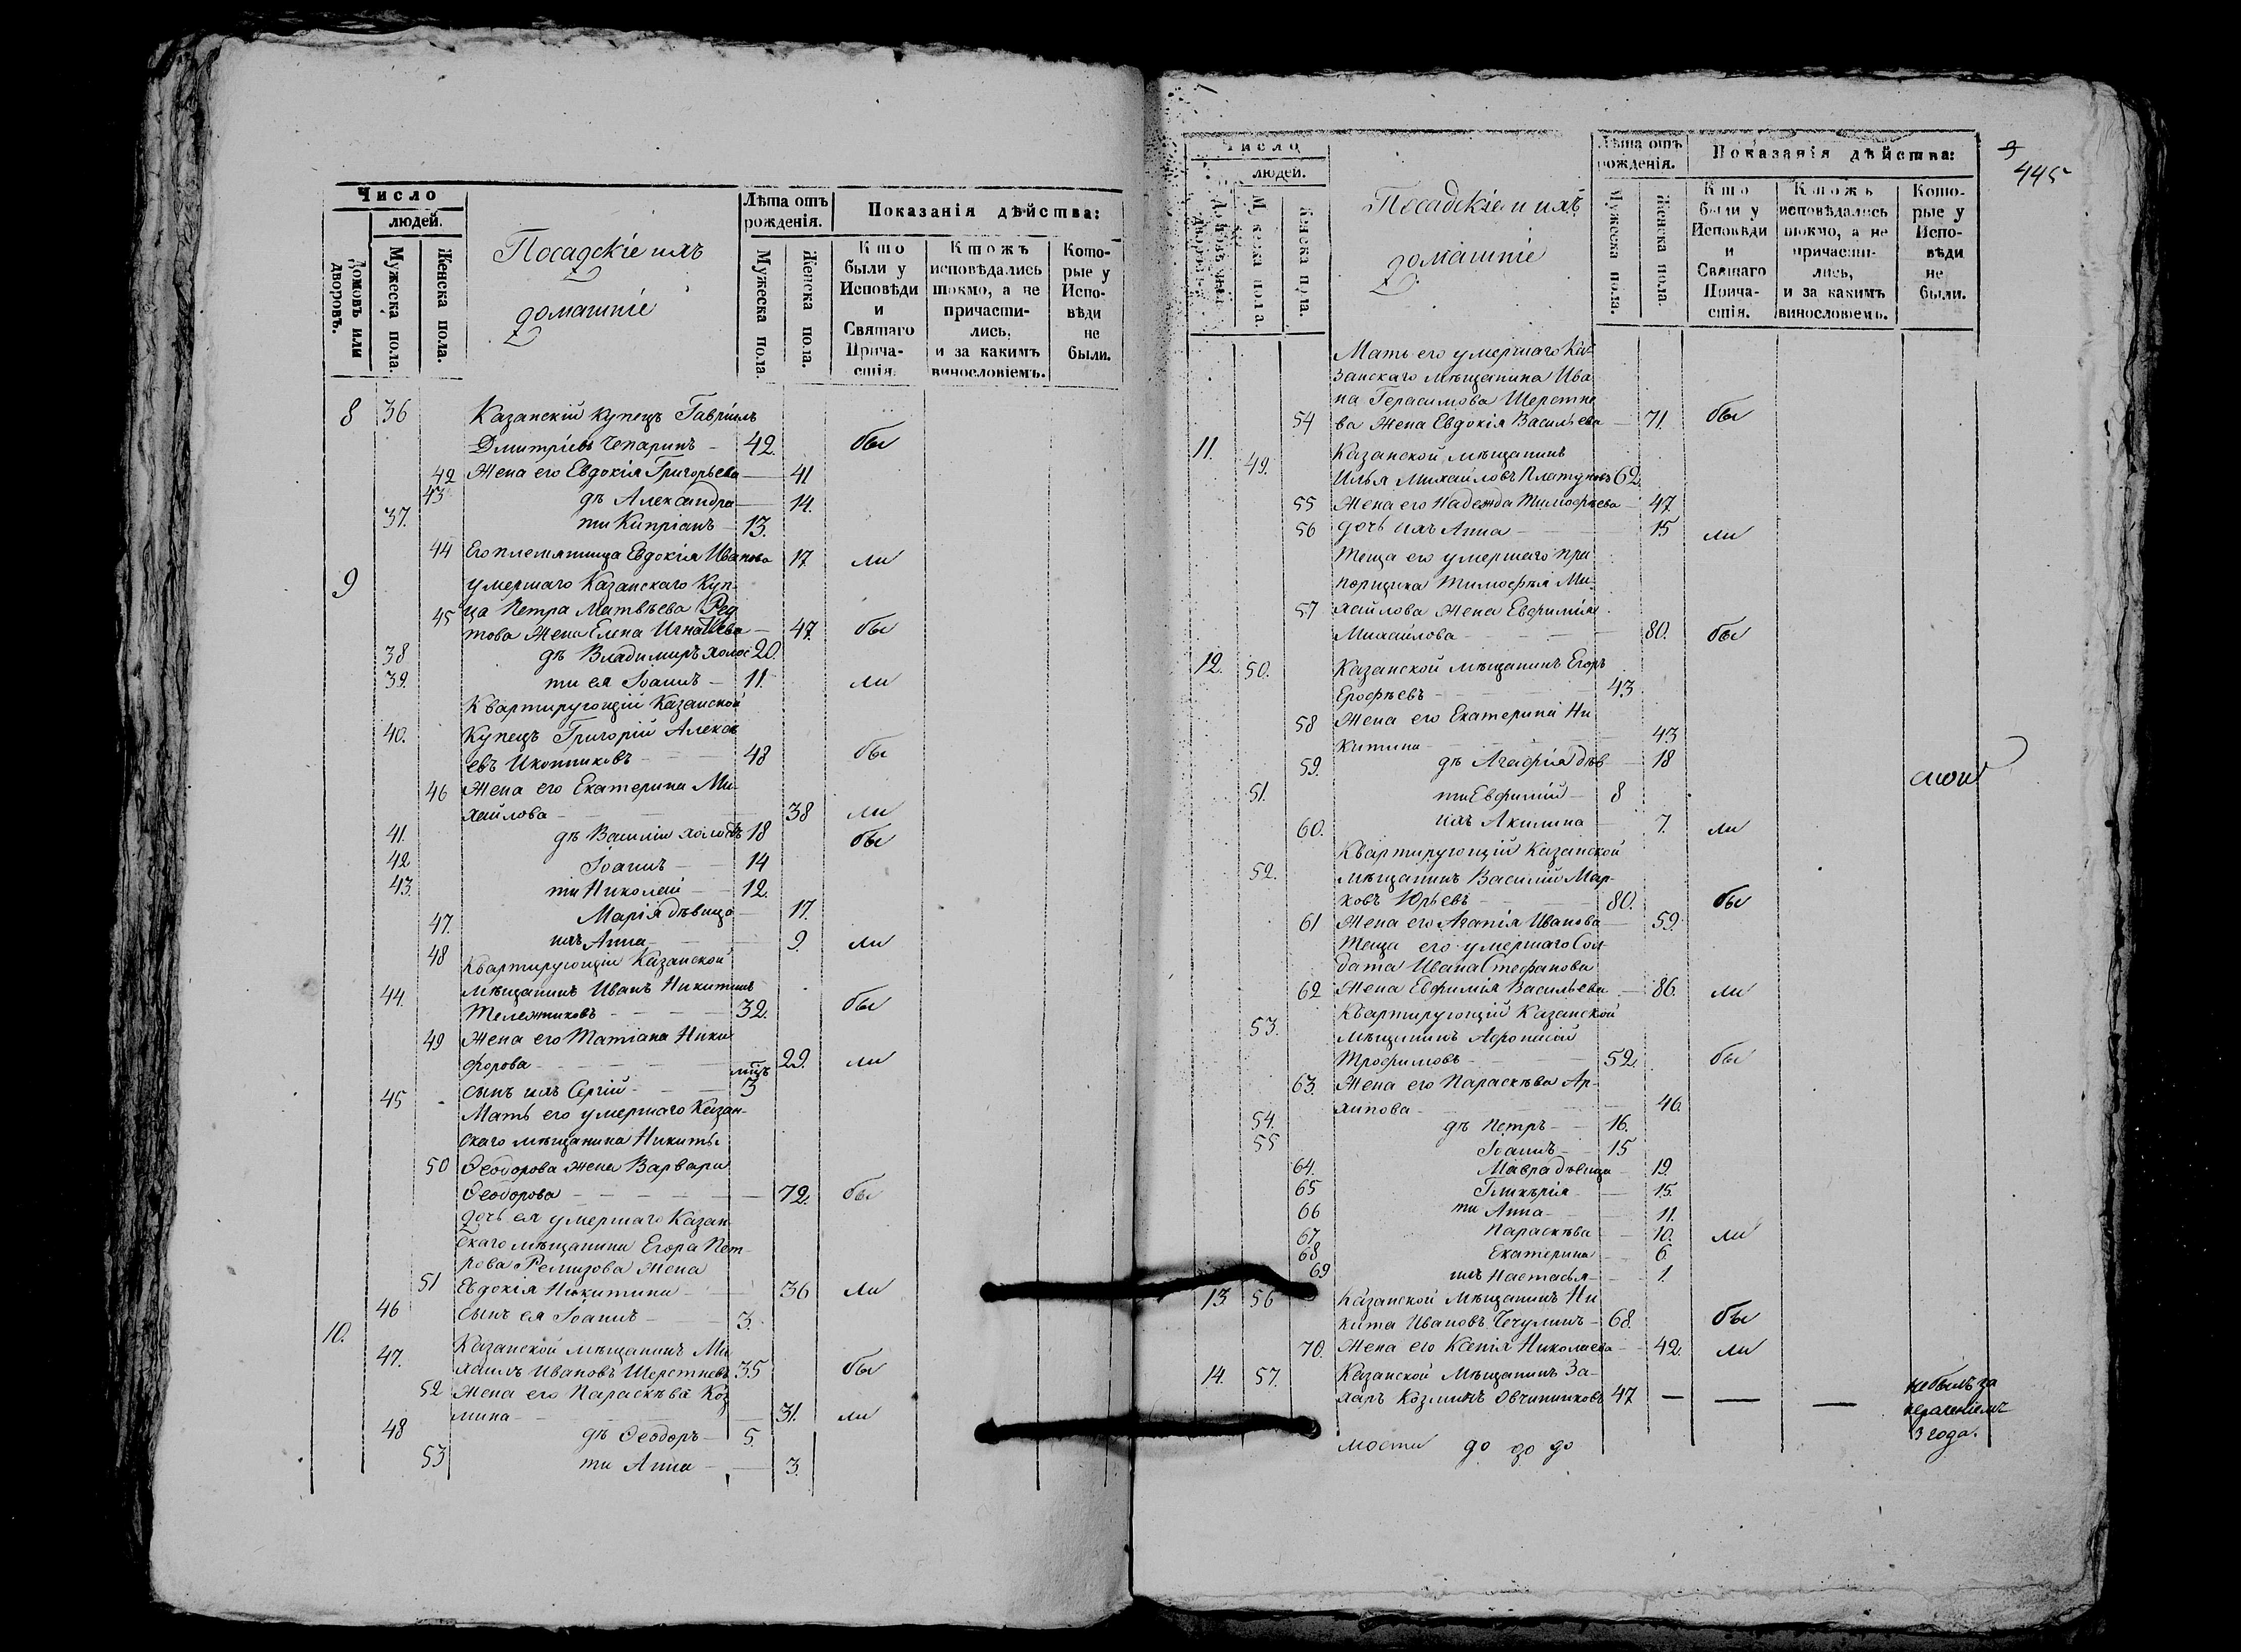 Число
людей.
Домовъ или дворовъ.
Мужеска пола.
Женска пола.
Посадскіе и ихъ
домашніе
Лѣта отъ рожденія.
Мужеска пола.
Женска пола.
Показанія дѣйства:
Кто были у Исповѣди и Святаго Прича-стія.
Ктожъ исповѣдались токмо, а не причасти-лись, и за какимъ винословіемъ.
Кото-рые у Испо-вѣди не были.
8 36 Казанскій купецъ Гавріилъ
Дмитріевъ Чепаринъ – 42. бы
42 Жена его Евдокія Григорьева – 41
43 дѣ Александра – 14.
37. ти Кипріанъ – 13.
44 Его племянница Евдокія Иванова 17 ли
9 умершаго Казанскаго Куп-
45 ца Петра Матвѣева
това Жена Елена Игнатьева – 47. бы
38 дѣ Владимиръ холос 20.
39. ти ея Іоаннъ – 11. ли
Квартирующій Казанской
40. Купецъ Григорій Алексѣ
евъ Иконниковъ – 48 бы
46 Жена его Екатерина Ми-
хайлова – 38 ли
41. дѣ Василій холостъ 18 бы
42 Іоаннъ – 14
43. ти Николай – 12.
47. Марія дѣвица – 17.
48 ихъ Анна – 9 ли
Квартирующій Казанской
44. мѣщанинъ Иванъ Никитинъ
Тележниковъ – 32. бы
49 Жена его Татіана Ники
форова – 29. ли
мцъ
45 сынъ ихъ Сергій – 3
Мать его умершаго Казан-
скаго мѣщанина Никиты
50 Ѳеодорова жена Варвара
Ѳеодорова – 72. бы
дочь ея умершаго Казан
скаго мѣщанина Егора Пет-
рова Ремизова жена
51 Евдокія Никитина – 36 ли
46 сынъ ея Іоаннъ – 3.
10. 47. Казанской мѣщанинъ Ми
хаилъ Ивановъ Шерстневъ 35 бы
52 Жена его Параскѣва Коз
мина – 31. ли
48 дѣ Ѳеодоръ – 5.
53 ти Анна – 3.
445
Число
людей.
Домовъ или дворовъ.
Мужеска пола.
Женска пола.
Посадскіе и ихъ
домашніе
Лѣта отъ рожденія.
Мужеска пола.
Женска пола.
Показанія дѣйства:
Кто были у Исповѣди и Святаго Прича-стія.
Ктожъ исповѣдались токмо, а не причасти-лись, и за какимъ винословіемъ.
Кото-рые у Испо-вѣди не были.
Мать его умершаго Ка-
занскаго мѣщанина Ива
на Герасимова Шерстне
54 ва Жена Евдокія Васильева – 71. бы
11. 49. Казанской мѣщанинъ
Илья Михайловъ Платуновъ 62.
55 Жена его Надежда Тимофѣева – 47.
56 дочь ихъ Анна – 15 ли
Теща его умершаго пра
порщика Тимофѣя Ми-
57 хайлова Жена Евфимія
Михайлова – 80. бы
12. 50. Казанской мѣщанинъ Егоръ
Ерофѣевъ – 43.
58 Жена его Екатерина Ни
китина – 43
59. дѣ Агафія дѣв – 18
51. ти Евфимій – 8
60. ихъ Акилина – 7. ли
Квартирующій Казанской
52. мѣщанинъ Василій Мар-
ковъ Юрьевъ – 80. бы
61 Жена его Агапія Иванова – 59.
Теща его умершаго Сол
дата Ивана Стефанова
62 Жена Евфимія Васильева – 86. ли
Квартирующій Казанской
53. мѣщанинъ Афонасій
Трофимовъ – 52. бы
63. Жена его Параскѣва Ар-
хипова – 46.
54. дѣ Петръ – 16.
55 Іоаннъ – 15
64. Мавра дѣвица – 19.
65 Гликѣрія – 15.
66 ти Анна – 11.
67. Параскѣва – 10. ли
68. Екатерина – 6.
69 ихъ Настасья – 1.
13 56 Казанской мѣщанинъ Ни
кита Ивановъ Чечулинъ – 68. бы
70. Жена его Ксенія Николаева – 42. ли
14. 57. Казанской мѣщанинъ За-
харъ Козминъ Овчинниковъ 47 – – – не былъ за
нераченіемъ
3 года.
до до до